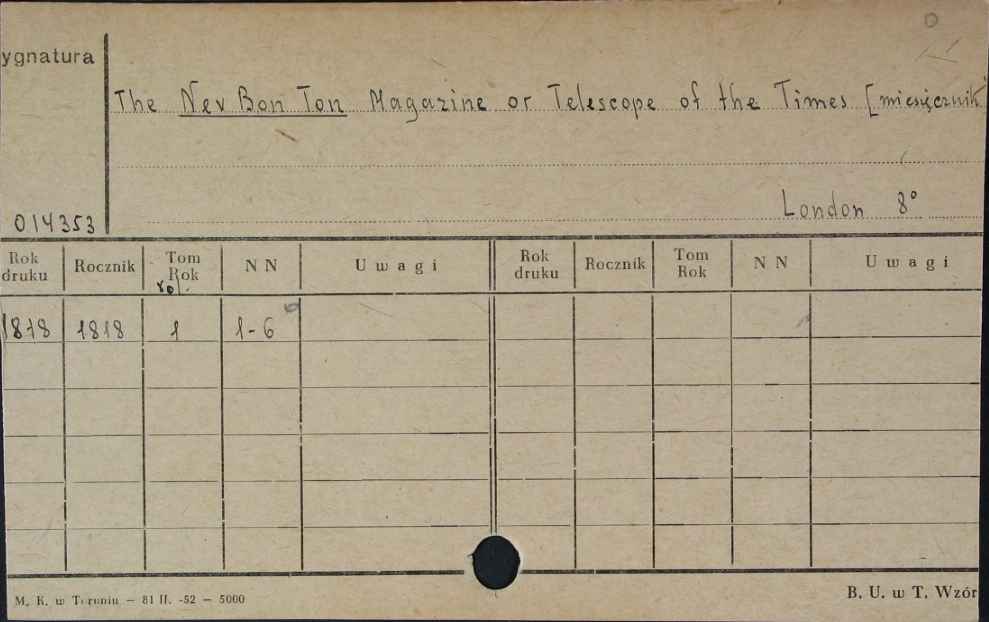 ygnatura
The Nev Bon Ton Magazine or Telescope of the Times [miesięcznik
London 8°
014353
Rok druku Rocznik Tom Rok N N Uwagi Rok druku Rocznik Tom Rok N N Uwagi
vol.
1818 1818 1 1-6
M. K. w Toruniu — 81 II. -52 — 5000
B. U. w T. Wzór